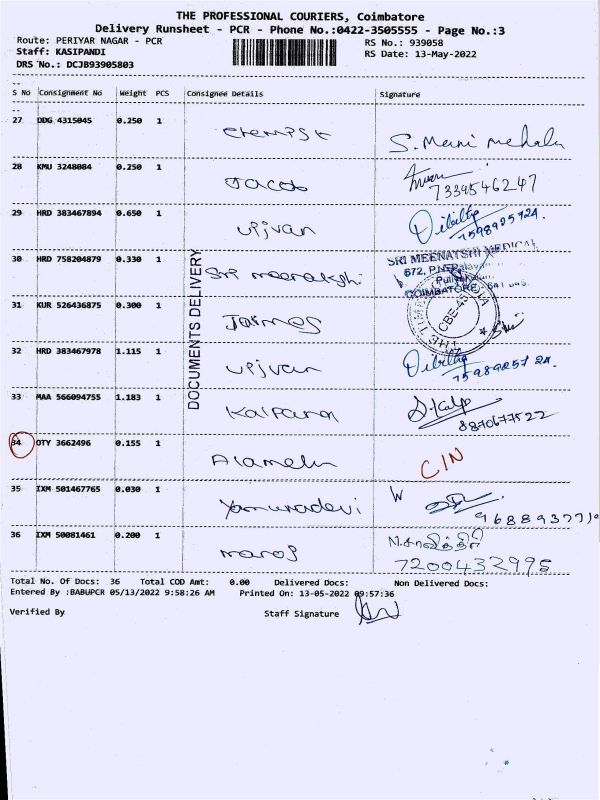 THE PROFESSIONAL COURIERS, Coimbatore
Delivery Runsheet - PCR - Phone No.:0422-3505555 - Page No.:3
Route: PERIYAR NAGAR - PCR
RS No.: 939058
Staff: KASIPANDI
RS Date: 13-May-2022
DRS No.: DCJB93905803
S No Consignment No Weight PCS Consignee Details Signature
27 DDG 4315045 0.250 1
S. Mani Mehala
28 KMU 3248084 0.250 1 Jacob
7339546247
29 HRD 383467894 0.650 1 Vijvan
7598925724.
30 HRD 758204879 0.330 1 Sri meenakshi
SRI MEENATSHI MEDICAL
672, P.N.Palayam
COIMBATORE - 641
31 KUR 526436875 0.300 1
THE TIMES INDIA
CBE-45
DOCUMENTS DELIVERY
32 HRD 383467978 1.115 1 Vijvan
7598925724.
33 MAA 566094755 1.183 1 Kalpana
8870677522
34 OTY 3662496 0.155 1 Alamelu CIN
35 IXM 501467765 0.030 1 Yamunadevi W
36 IXM 50081461 0.200 1 N.சாவித்திரி
7200432995
Total No. Of Docs: 36 Total COD Amt: 0.00 Delivered Docs: Non Delivered Docs:
Entered By :BABUPCR 05/13/2022 9:58:26 AM Printed On: 13-05-2022 09:57:36
Verified By Staff Signature